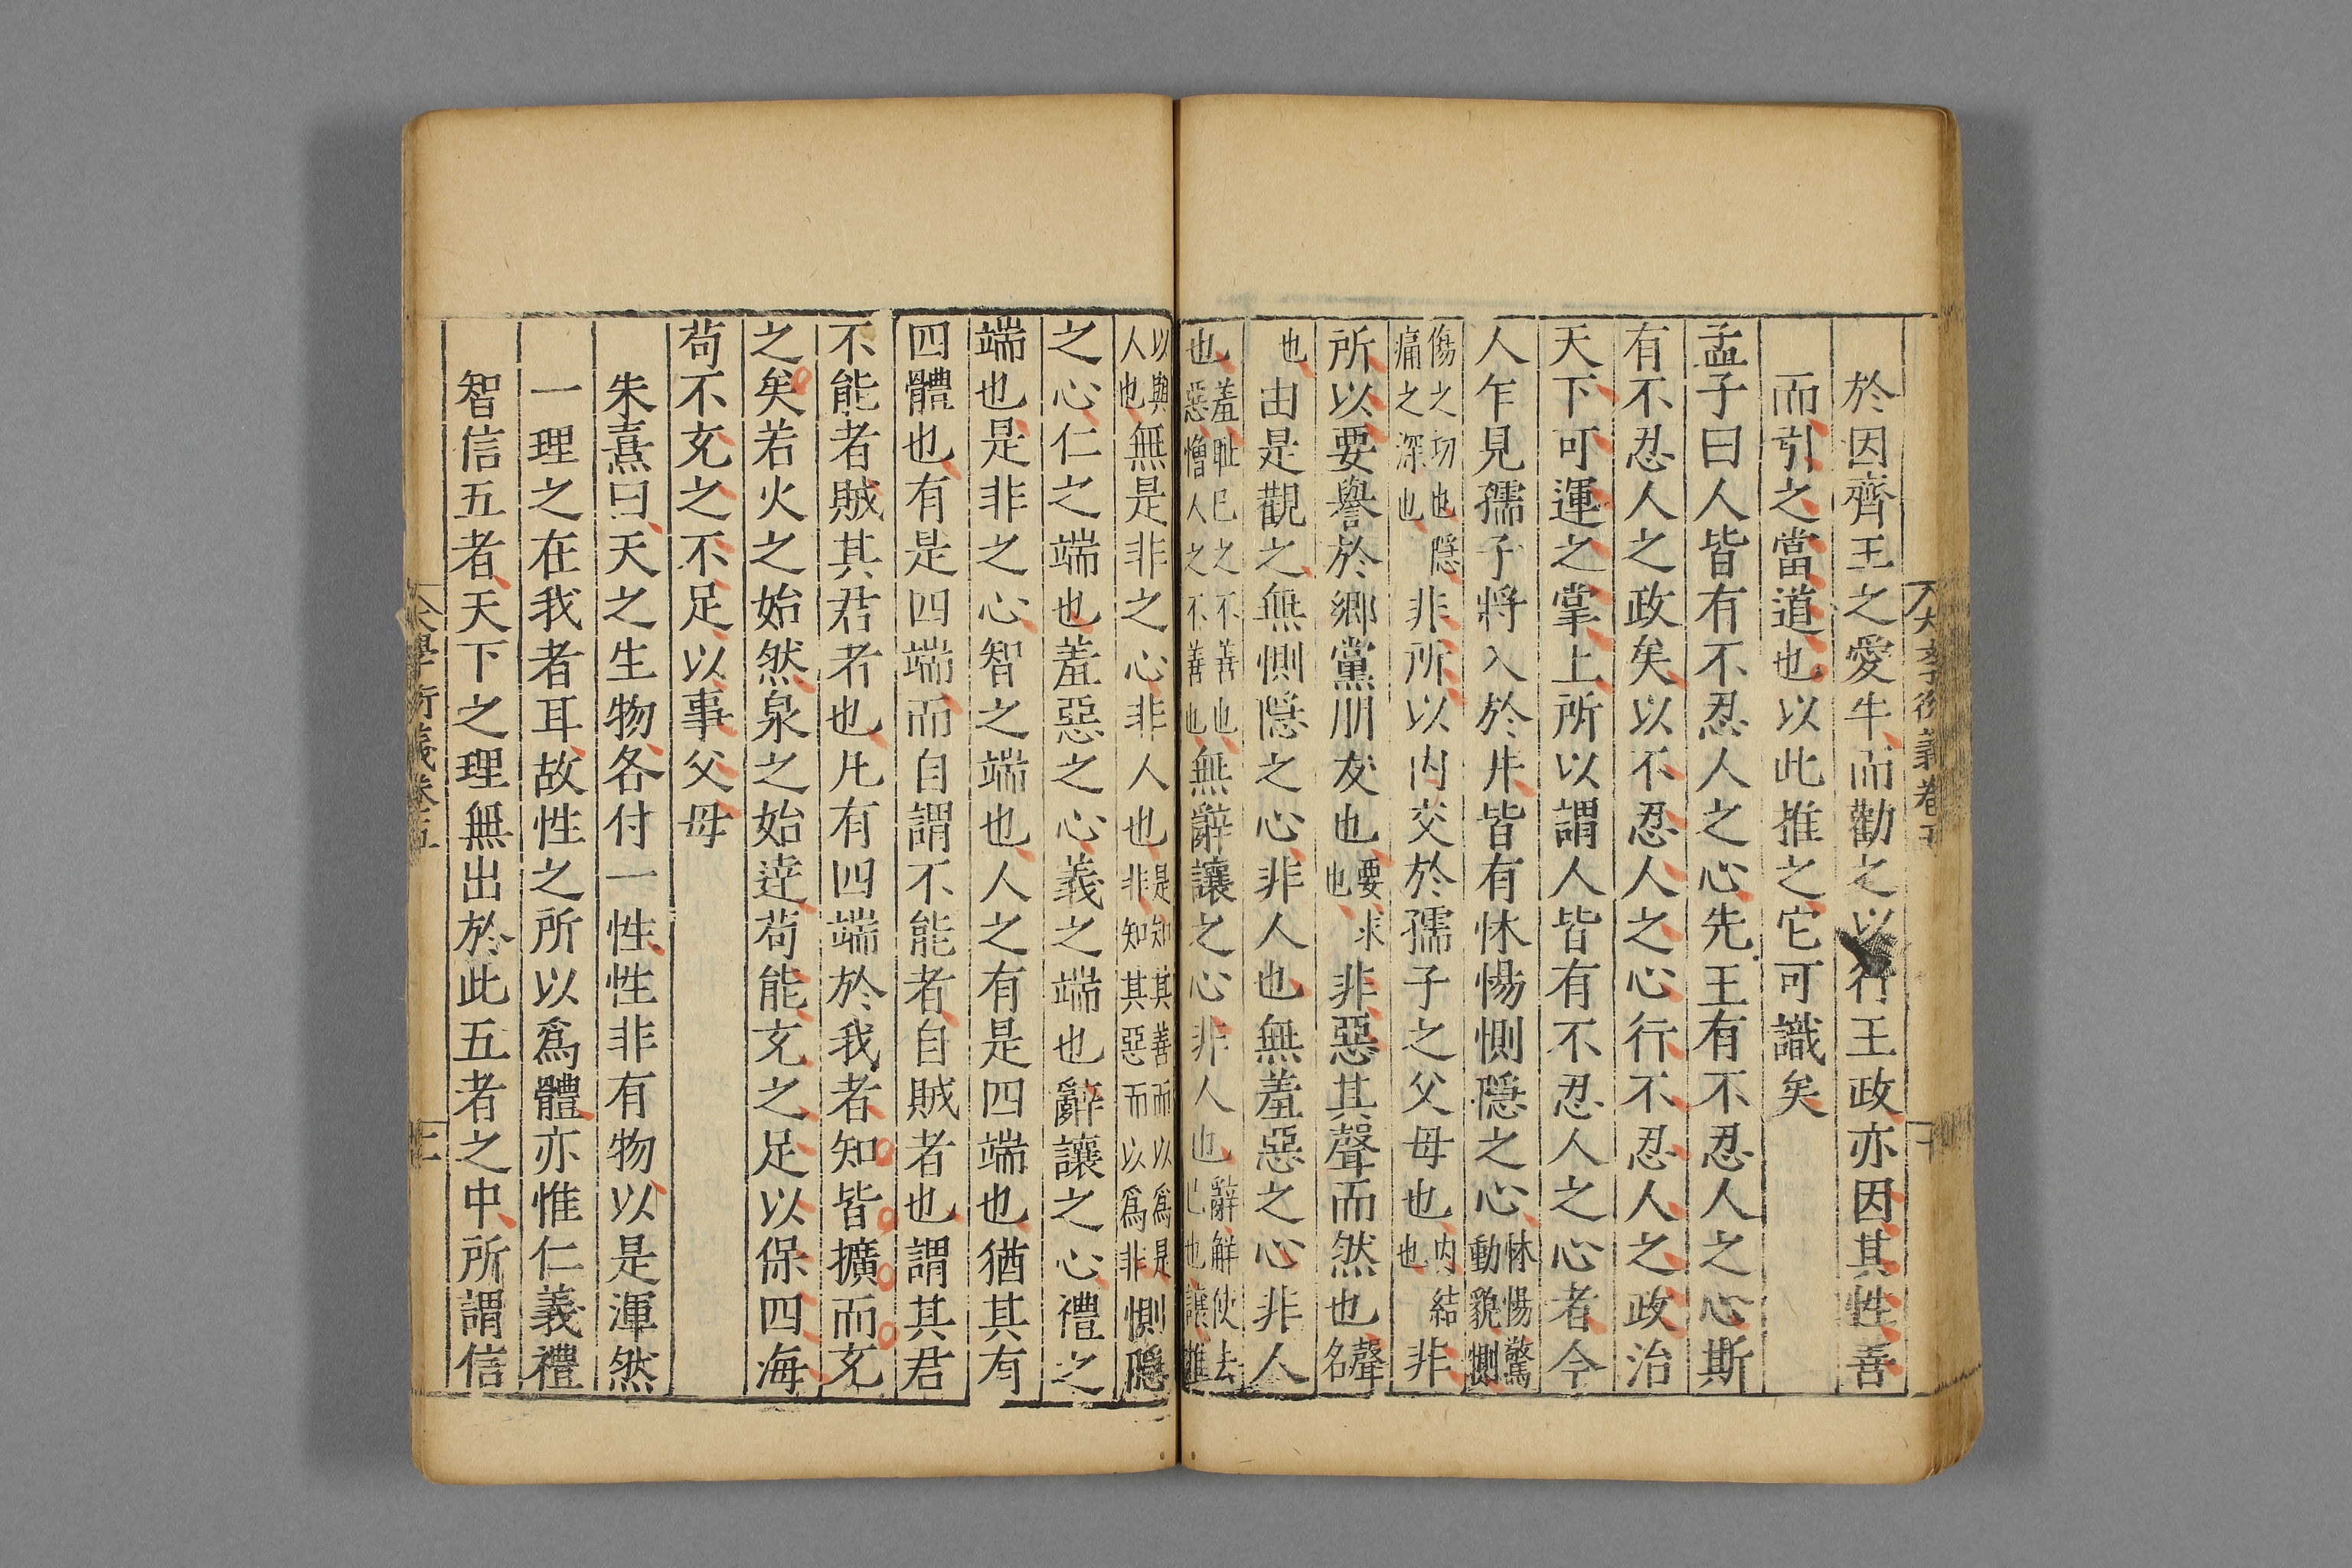 於因齊王之愛牛而勸之以行王政亦因其性善
而引之當道也以此推之它可識矣
孟子曰人皆有不忍人之心先王有不忍人之心斯
有不忍人之政矣以不忍人之心行不忍人之政治
天下可運之掌上所以謂人皆有不忍人之心者今
人乍見孺子將入於井皆有怵惕惻隱之心怵惕驚動貌惻
傷之切也隱痛之深也非所以內交於孺子之父母也内結也非
所以要譽於鄉黨朋友也要求也非惡其聲而然也聲名
也由是觀之無惻隱之心非人也無羞惡之心非人
也羞耻已之不善也惡憎人之不善也無辭讓之心非人也辭解使去已也讓推
以與人也無是非之心非人也是知其善而以爲是非知其惡而以爲非惻隱
之心仁之端也羞惡之心義之端也辭讓之心禮之
端也是非之心智之端也人之有是四端也猶其有
四體也有是四端而自謂不能者自賊者也謂其君
不能者賊其君者也凡有四端於我者知皆擴而充
之矣若火之始然泉之始達苟能充之足以保四海
苟不充之不足以事父母
朱熹曰天之生物各付一性性非有物以是渾然
一理之在我者耳故性之所以爲體亦惟仁義禮
智信五者天下之理無出於此五者之中所謂信
大學衍義卷五